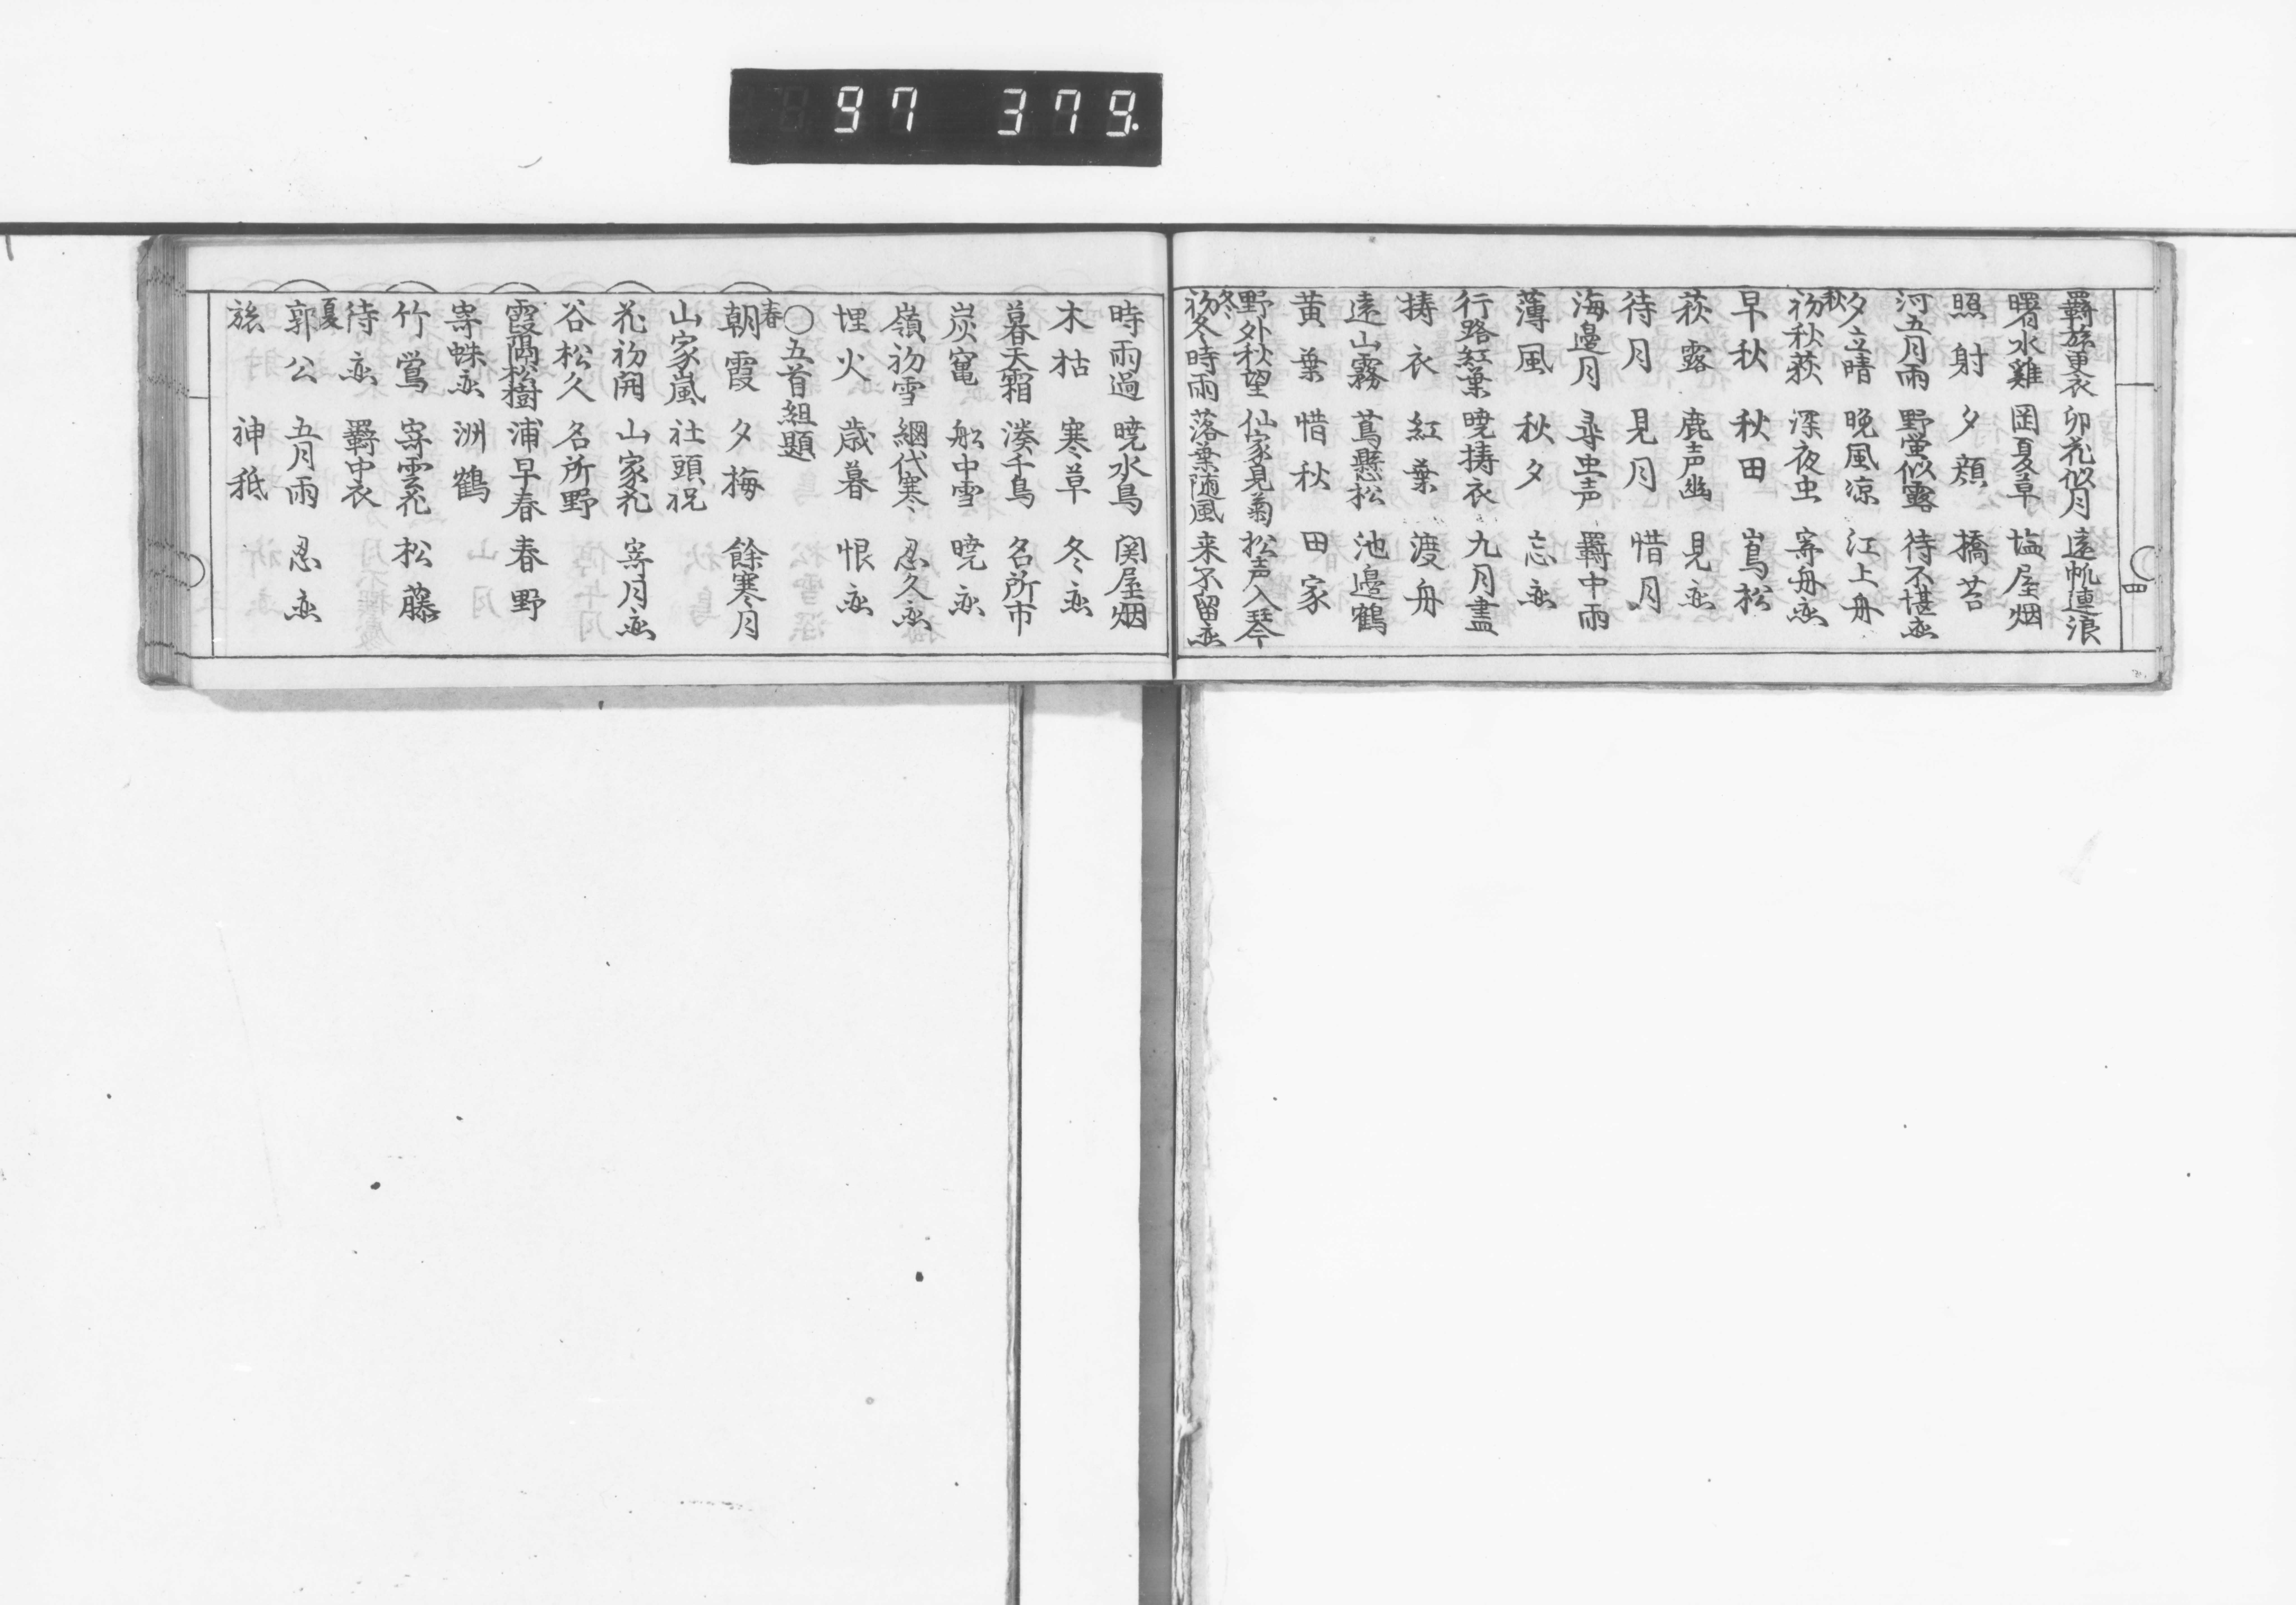 97 379.
四
羇旅更衣 卯花似月 遠帆連浪
曙水雞 岡夏草 塩屋烟
照射 夕顔 橋苔
河五月雨 野蛍似露 待不堪恋
夕立晴 晩風凉 江上舟
秋
初秋荻 深夜虫 寄舟恋
早秋 秋田 嶌松
萩露 鹿声幽 見恋
待月 見月 惜月
海邉月 尋虫声 羇中雨
薄風 秋夕 忘恋
行路紅葉 暁擣衣 九月盡
擣衣 紅葉 渡舟
遠山霧 蔦懸松 池邉鶴
黄葉 惜秋 田家
野外秋望 仙家見菊 松声入琴
冬
初冬時雨 落葉随風 来不留恋
時雨過 暁水鳥 関屋烟
木枯 寒草 冬恋
暮天霜 湊千鳥 名所市
炭竃 舩中雪 暁恋
嶺初雪 網代寒 忍久恋
埋火 歳暮 恨恋
〇五首組題
春
朝霞 夕梅 餘寒月
山家嵐 社頭祝
花初開 山家花 寄月恋
谷松久 名所野
霞隔松樹 浦早春 春野
寄蛛恋 洲鶴
竹鴬 寄雲花 松藤
待恋 羇中衣
夏
郭公 五月雨 忍恋
旅 神祇